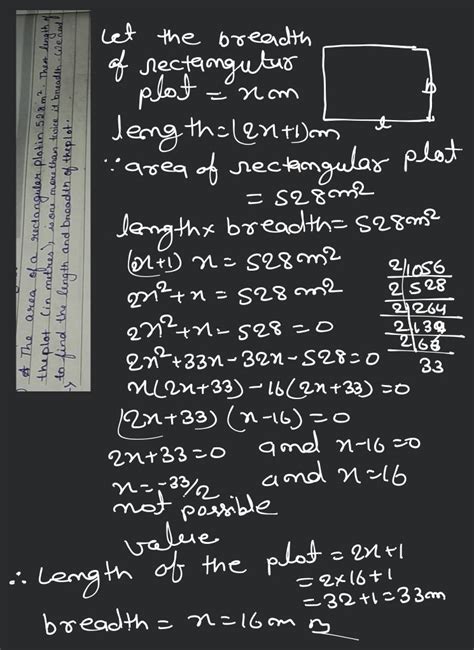 Q The area of a rectangular plot in 528m². Then length of
the plot (in metres) is one more than twice it breadth. We need
to find the length and breadth of the plot.
→
Let the breadth
of rectangular
plot = x m
length = (2x+1)m
b
l
∵ area of rectangular plot
= 528m²
length × breadth = 528m²
(2x+1) x = 528m²
2x²+x = 528m²
2x²+x-528=0
2x²+33x-32x-528=0
x(2x+33)-16(2x+33)=0
(2x+33) (x-16)=0
2x+33=0 and x-16=0
x=-33/2 and x=16
not possible
value
2|1056
2|528
2|264
2|132
2|66
33
∴ Length of the plot = 2x+1
= 2×16+1
= 32+1=33m
breadth = x=16m